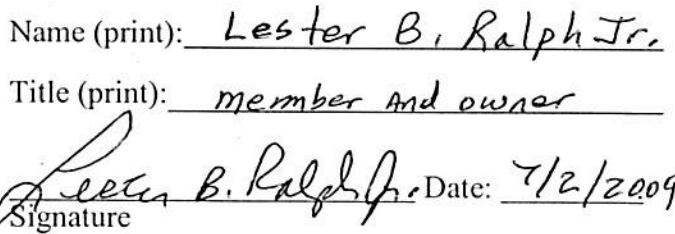 Name (print): Lester B. Ralph Jr.
Title (print): member and owner
Lester B. Ralph Jr. Date: 7/2/2009
Signature